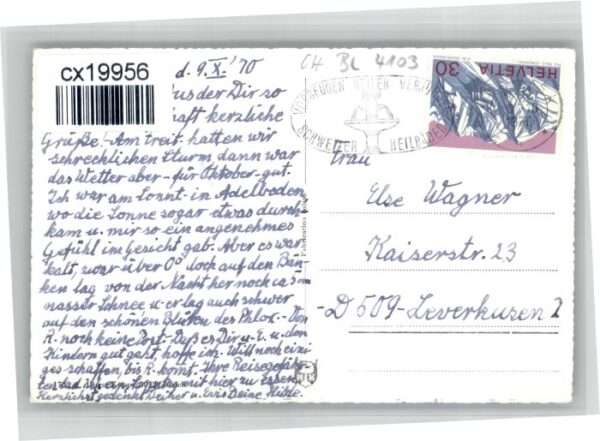 cx19956
d. 9.X.'70
CH BL 4103
HELVETIA
30
SCHWEIZER HEILBÄDER
aus der Dir so
herzliche
Grüße! Am Freit. hatten wir
schrecklichen Sturm dann war
das Wetter aber - für Oktober - gut.
Ich war am Sonnt. in Adelboden
wo die Sonne sogar etwas durch
kam u. mir so ein angenehmes
Gefühl im Gesicht gab. Aber es war
kalt, war über 0° doch auf den Bän-
ken lag von der Nacht her noch ca. 5 cm
nasser Schnee u. er lag auch schwer
auf den schönen Blüten des Phlox. - Von
R. noch keine Post. Daß es Dir u. E. u. den
Kindern gut geht, hoffe ich. Will noch eini-
ges schaffen, bis R. kommt. Ihre Reisegefähr-
mit hier zu Essen.
Herzlichst gedenkt Deiher u. Eins Deine
Frau
Else Wagner
Kaiserstr. 23
-D 509-Leverkusen 2